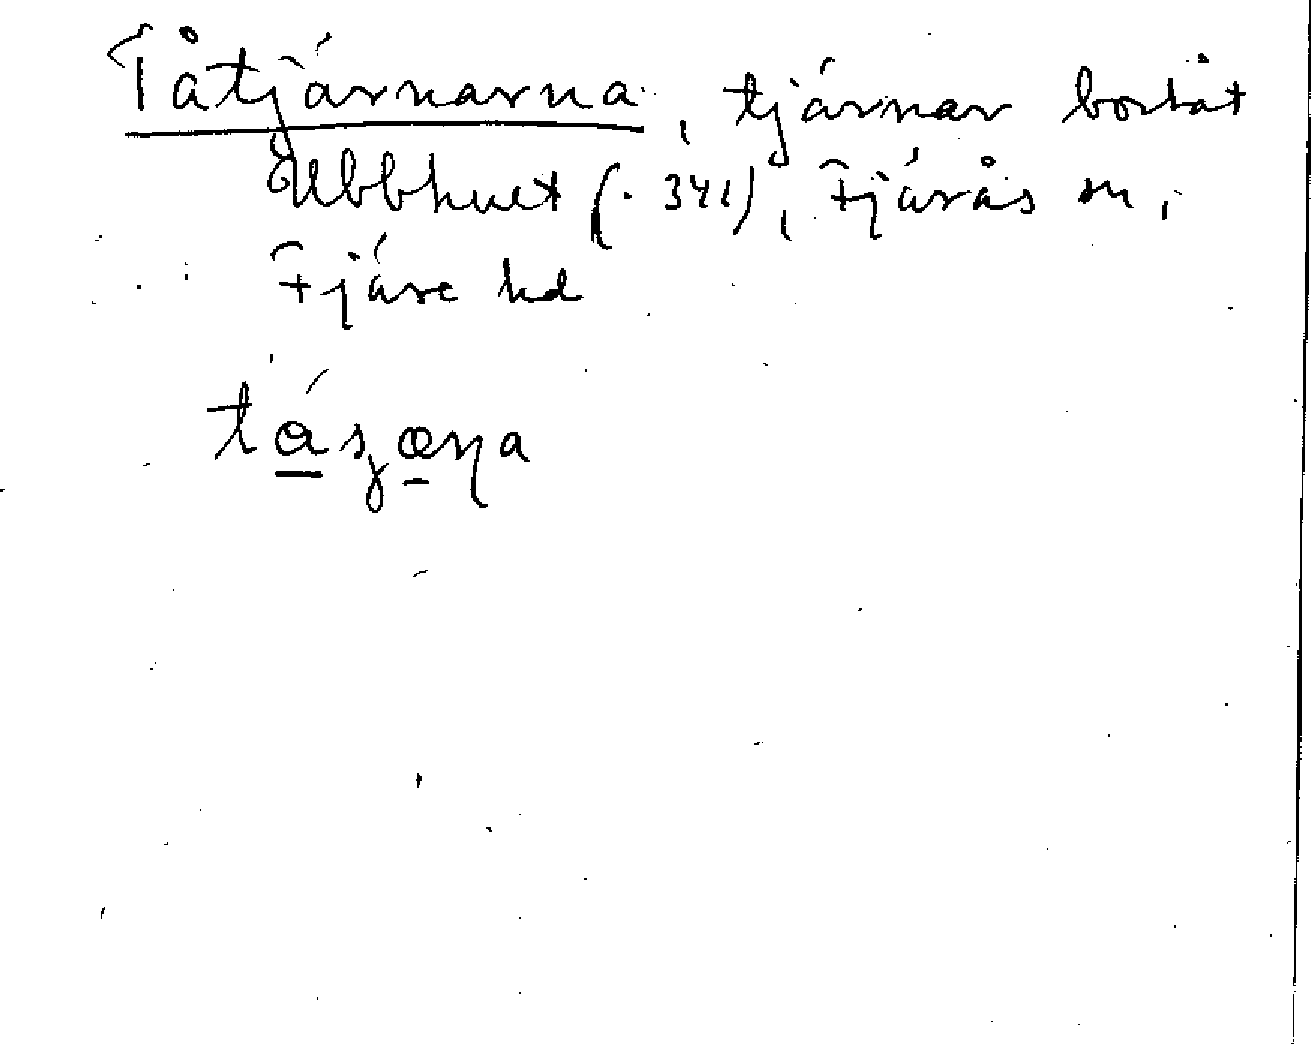 Tåtjärnarna, tjärnar bortåt
Ubbhult (. 341), Fjärås sn,
Fjäre hd